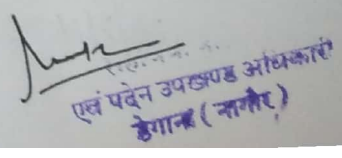 एवं पदेन उपखण्ड अधिकारी
डेगाना (नागौर)